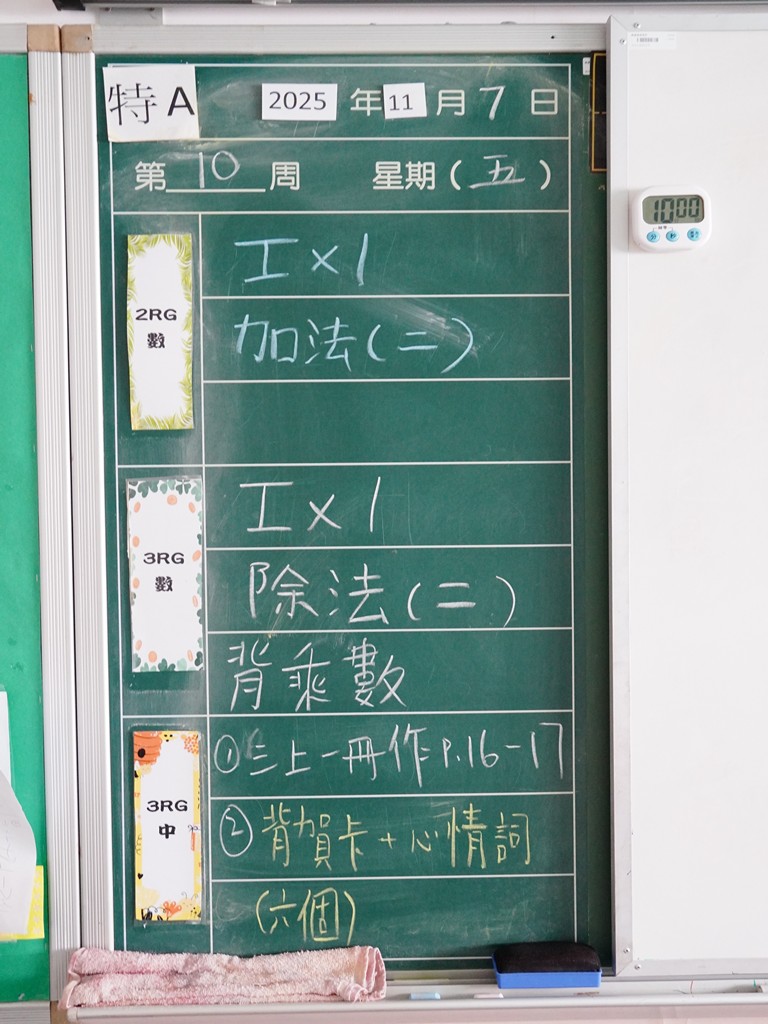 特A
2025 年 11 月 7 日
第 10 周 星期(五)
2RG
數
工×1
加法(二)
3RG
數
工×1
除法(二)
背乘數
3RG
中
①三上一冊作P.16-17
②背賀卡+心情詞
(六個)
10:00